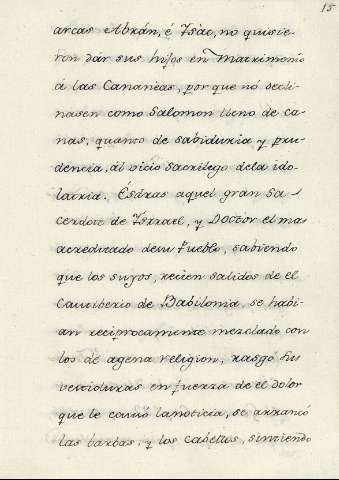 15
arcas Abrán, é Ysác, no quisie-
ron dár sus hijos en Matrimonio
á las Cananéas, por que nó decli-
nasen como Salomon lleno de ca-
nas, quanto de sabiduria y pru-
déncia, ál vicio sacrilego dela ido-
latria. Ésdras aquel gran Sa-
cerdote de Ysrrael, y Doctor el mas
acreditado desu Pueblo, sabiendo
que los suyos, recien salidos de el
Cautiberio de Babilonia, se habi-
an reciprocamente mezclado con
los de agena religion, rasgó sus
vestiduras en fuerza de el dolor
que le causó lanoticia, se arrancó
las barbas, y los cabellos, sintiendo